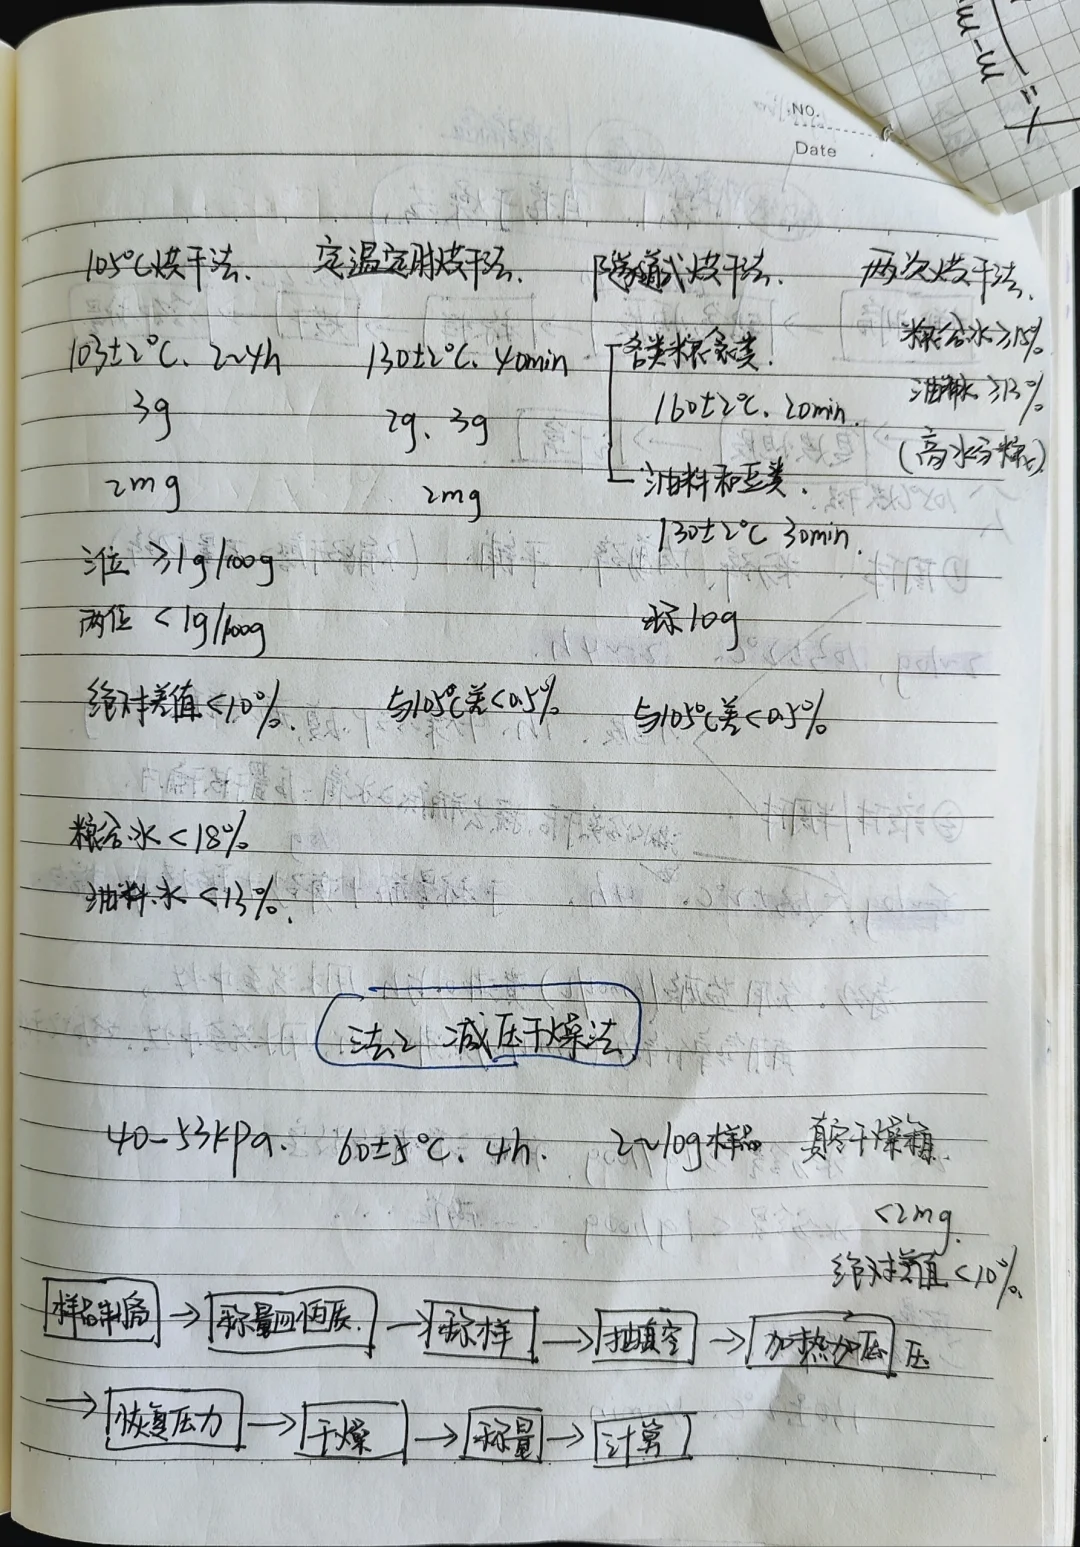 NO.
Date
105℃烘干法. 定温定时烘干法. 隧道式烘干法. 两次烘干法.
103±2℃. 2~4h 130±2℃. 40min 各类粮食类. 粮含水≥18%
3g 2g. 3g 160±2℃. 20min. 油料水≥13%
2mg 2mg 油料和豆类. (高水分粮)
130±2℃ 30min.
三位 ≥1g/100g
两位 <1g/100g 称10g
绝对差值<10%. 与105℃差<0.5% 与105℃差<0.5%
粮含水<18%
油料水<13%.
法2 减压干燥法
40-53kPa. 60±5℃. 4h. 2~10g样品 真空干燥箱.
<2mg.
绝对差值<10%.
样品制备 → 称量皿恒质. → 称样 → 抽真空 → 加热加压 压
→ 恢复压力 → 干燥 → 称量 → 计算